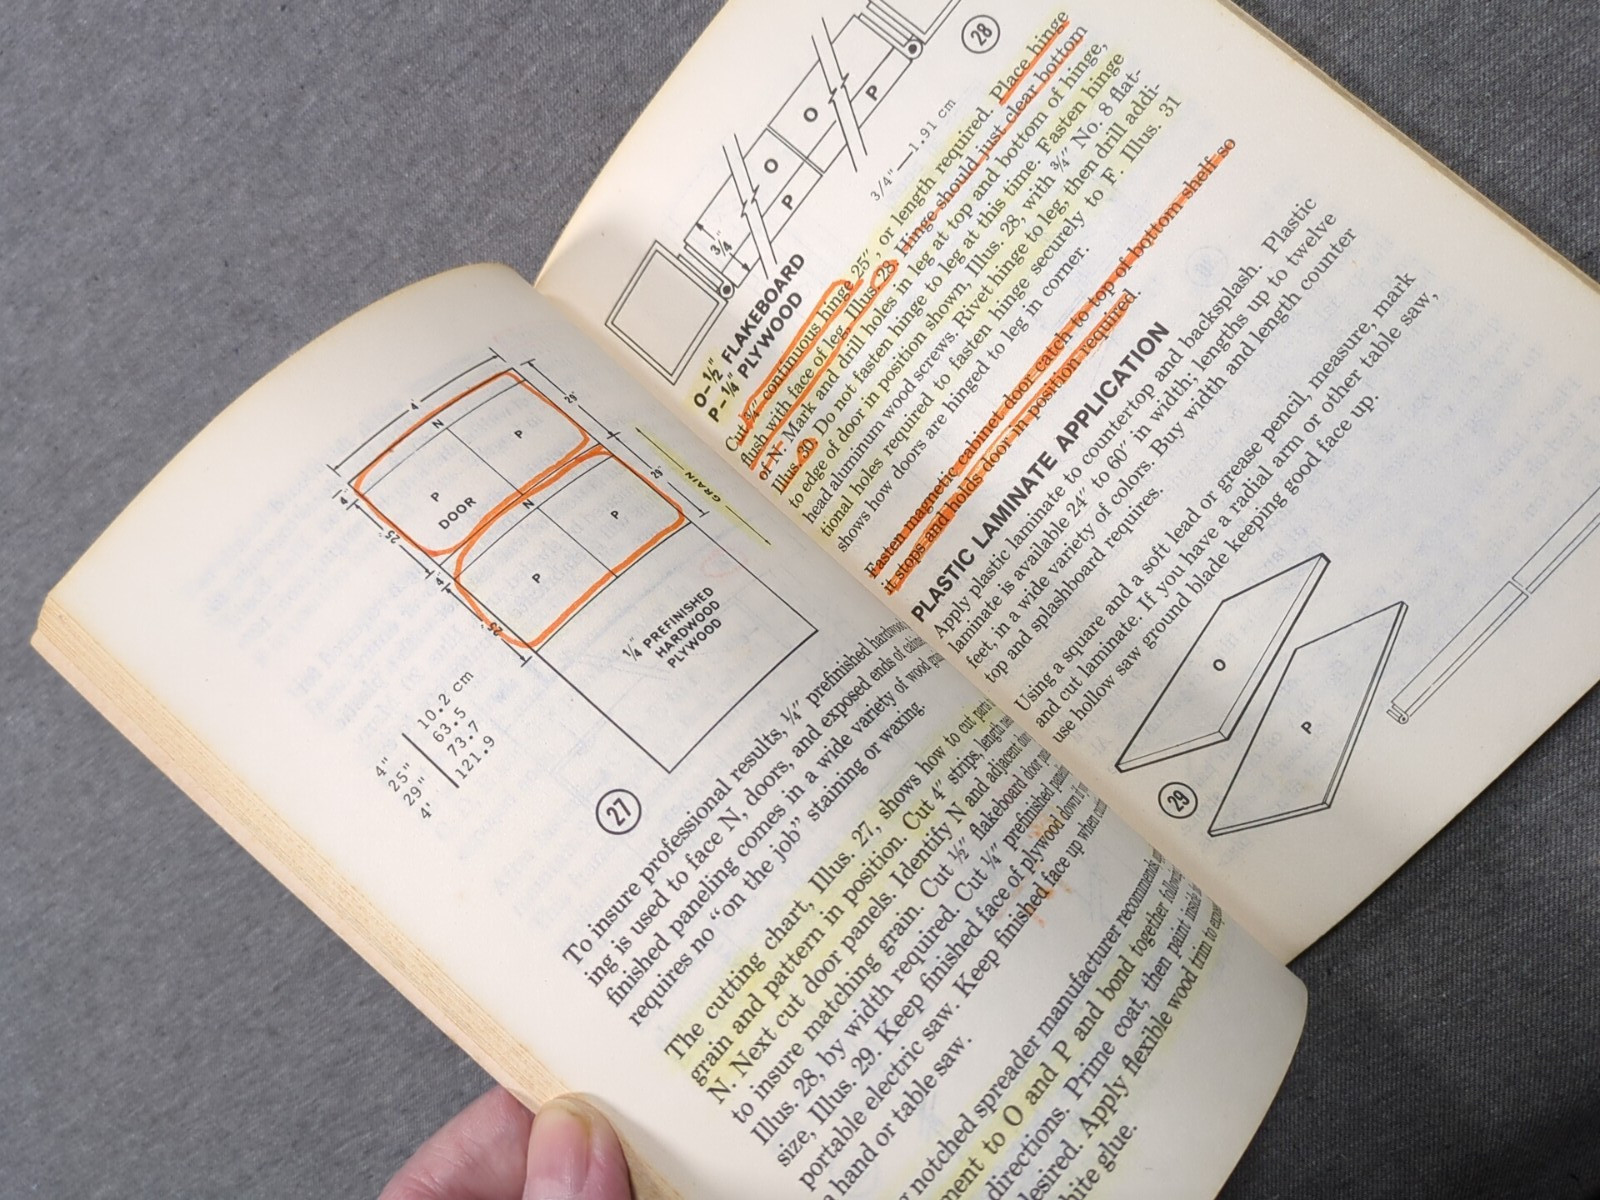 4'
29"
N
P
P
DOOR
29"
N
P
P
GRAIN
4"
25"
4"
25"
1/4" PREFINISHED
HARDWOOD
PLYWOOD
4" 10.2 cm
25" 63.5
29" 73.7
4' 121.9
27
To insure professional results, ¼" prefinished hardwood
ing is used to face N, doors, and exposed ends of
finished paneling comes in a wide variety of wood
requires no "on the job" staining or waxing.
The cutting chart, Illus. 27, shows how to cut parts
grain and pattern in position. Cut 4" strips, length
N. Next cut door panels. Identify N and adjacent
to insure matching grain. Cut ½" flakeboard door
Illus. 28, by width required. Cut ¼" prefinished
size, Illus. 29. Keep finished face of plywood down
portable electric saw. Keep finished face up when
a hand or table saw.
notched spreader manufacturer recommends,
ment to O and P and bond together
directions. Prime coat, then paint inside
esired. Apply flexible wood trim to
hite glue.
28
O
P
O
P
3/4"
3/4"—1.91 cm
O-½" FLAKEBOARD
P-¼" PLYWOOD
Cut ¾" continuous hinge 25", or length required. Place hinge
flush with face of leg, Illus. 28. Hinge should just clear bottom
of N. Mark and drill holes in leg at top and bottom of hinge,
Illus. 30. Do not fasten hinge to leg at this time. Fasten hinge
to edge of door in position shown, Illus. 28, with ¾" No. 8 flat-
head aluminum wood screws. Rivet hinge to leg, then drill addi-
tional holes required to fasten hinge securely to F. Illus. 31
shows how doors are hinged to leg in corner.
Fasten magnetic cabinet door catch to top of bottom shelf so
it stops and holds door in position required.
PLASTIC LAMINATE APPLICATION
Apply plastic laminate to countertop and backsplash. Plastic
laminate is available 24" to 60" in width; lengths up to twelve
feet, in a wide variety of colors. Buy width and length counter
top and splashboard requires.
Using a square and a soft lead or grease pencil, measure, mark
and cut laminate. If you have a radial arm or other table saw,
use hollow saw ground blade keeping good face up.
O
P
29